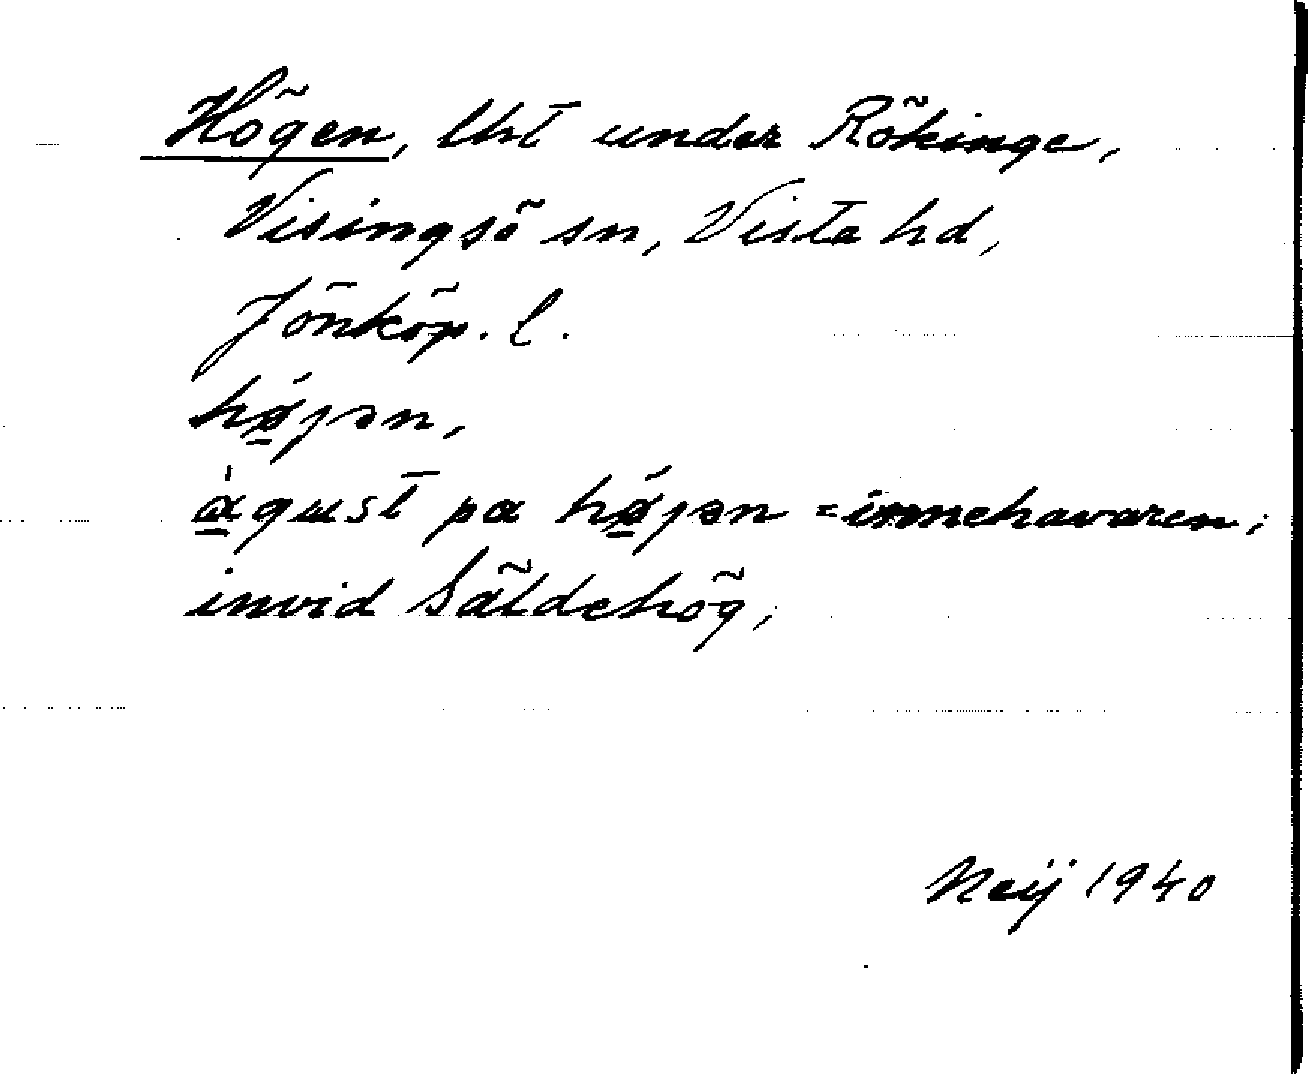 Högen, lht under Rökinge,
Visingsö sn, Vista hd,
Jönköp. l.
hǿ̱jən,
à̱gust pa hǿ̱jən = innehavaren;
invid Säldehög;
Neij 1940